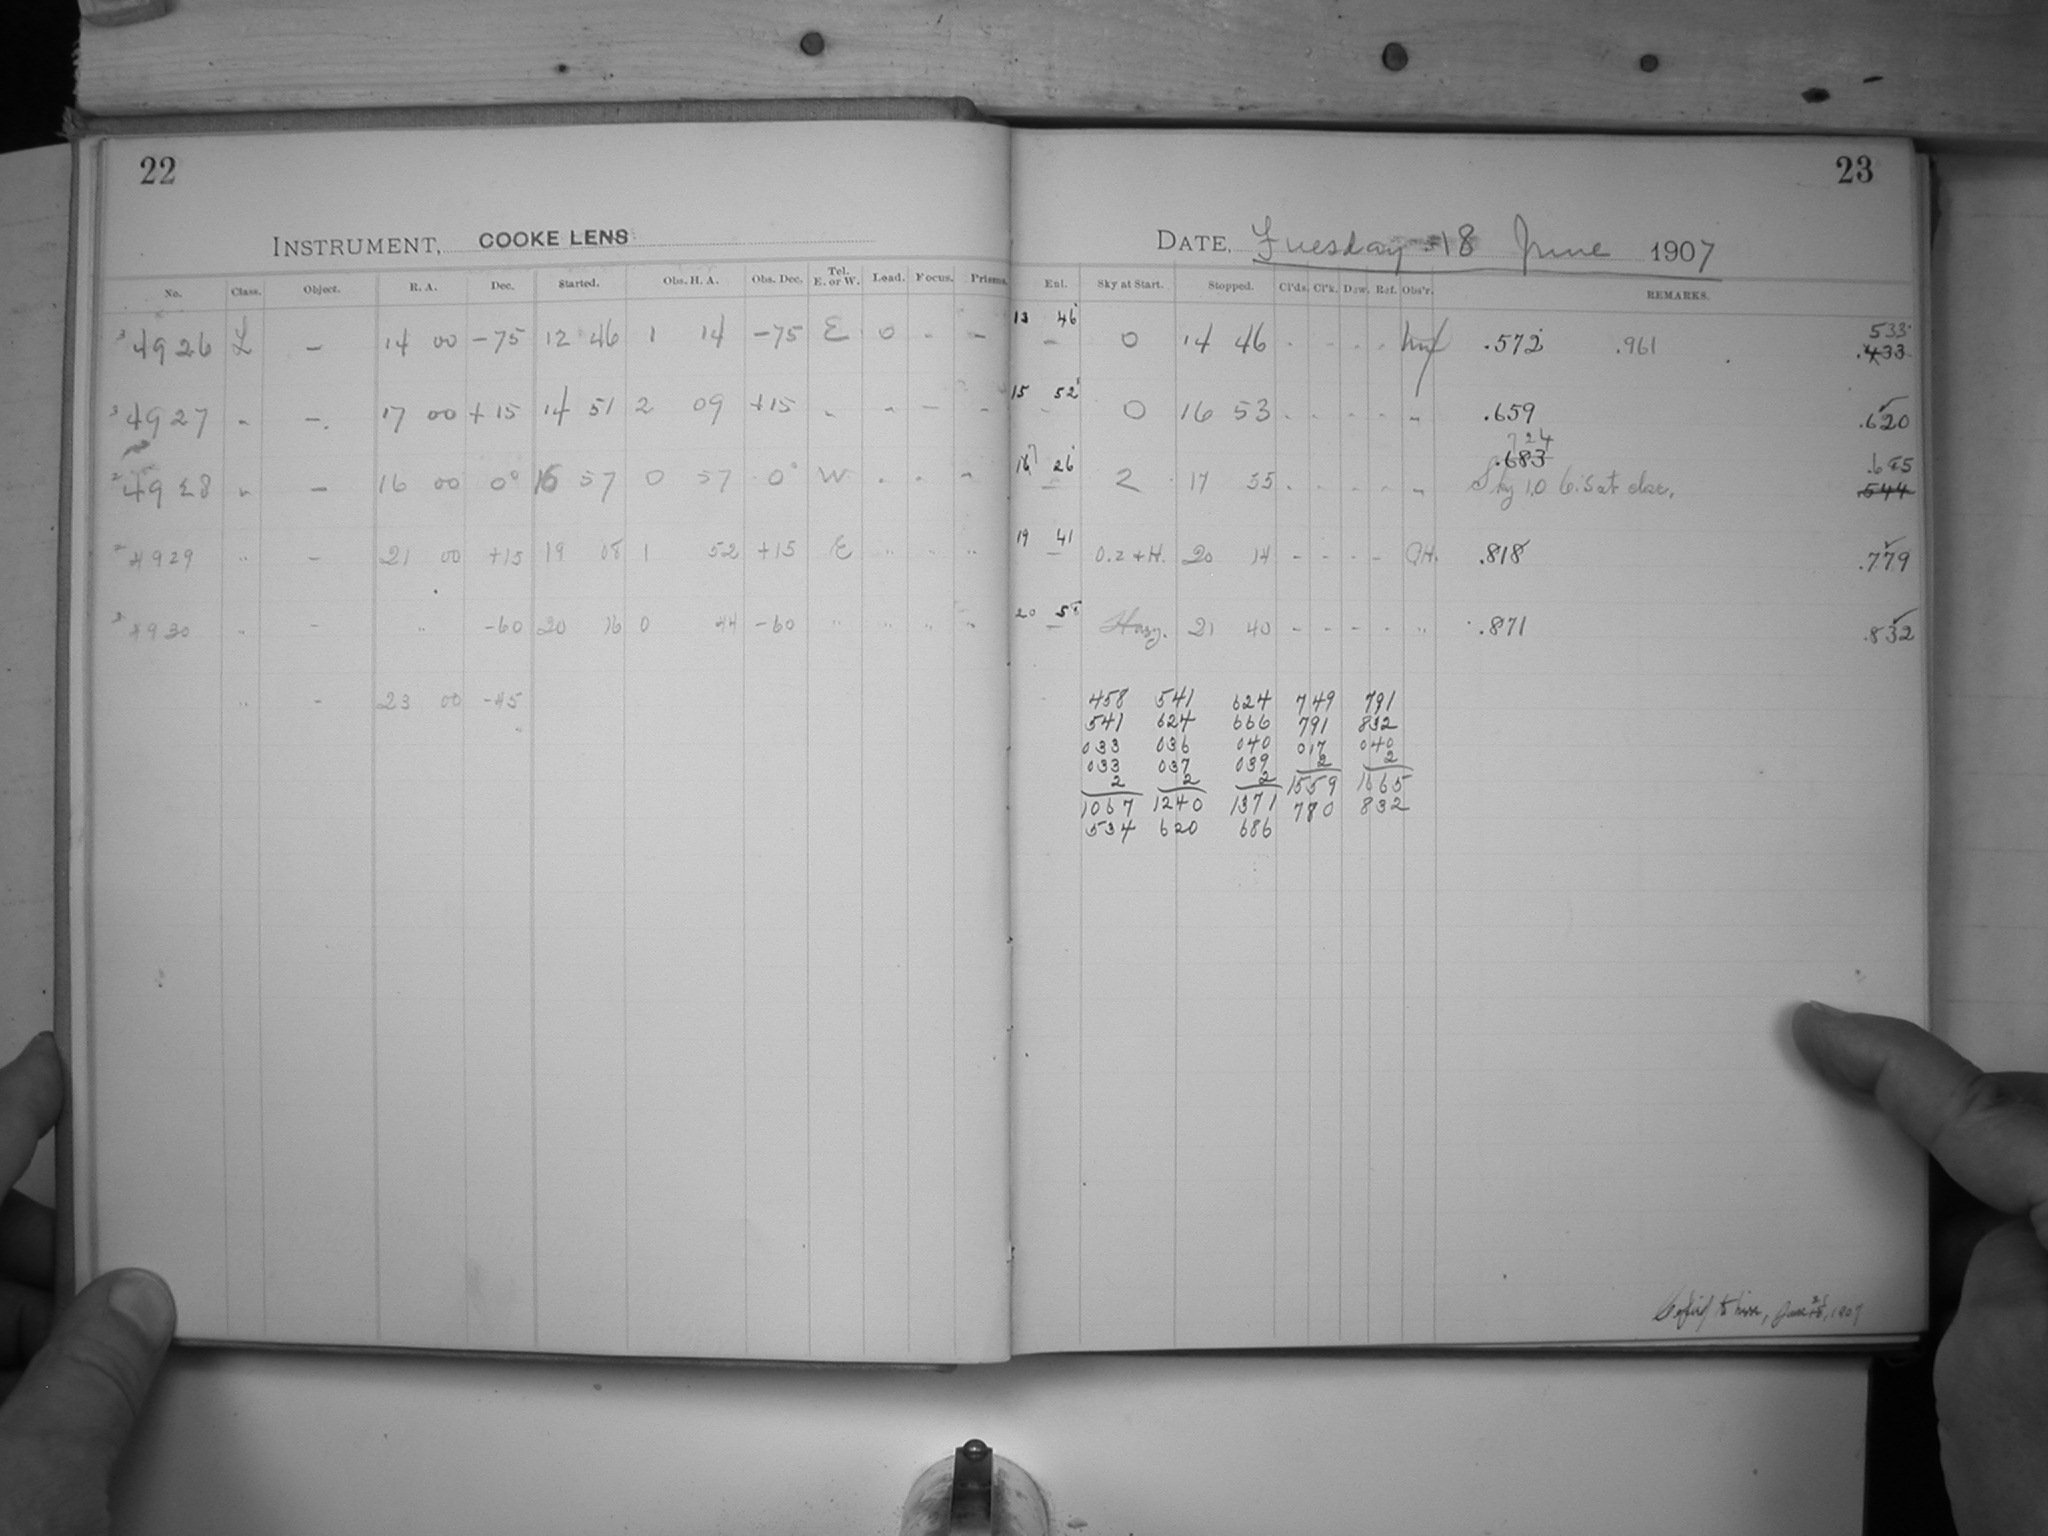 22
INSTRUMENT, COOKE LENS
No. Class. Object. R. A. Dec. Started. Obs. H. A. Obs. Dec. Tel. E. or W. Load. Focus. Prisms.
3 4926 L – 14 00 –75 12 46 1 14 –75 E 0 - –
3 4927 " –. 17 00 +15 14 51 2 09 +15 " " – "
2 4928 " – 16 00 0° 16 57 0 57 0° W . . "
2 4929 " – 21 00 +15 19 08 1 52 +15 E " " "
3 4930 " – " –60 20 16 0 44 –60 " " " "
" – 23 00 –45
23
DATE, Tuesday 18 June 1907
Enl. Sky at Start. Stopped. Cl'ds. Cl'k. Dew. Ref. Obs'r. REMARKS.
13 46 – 0 14 46 .572 .961 533 .433
15 52 0 16 53 " .659 .620
724
26 – 2 17 55 " .683 Sky 10 .544
19 41 – 0.2 + H. 20 14 - - - - .818 .779
20 – Hazy. 21 40 - - - - " .871 .832
458 541 624 749 791
541 624 666 791 832
033 036 040 017 040
033 037 039 2 2
2 2 2 1559 1665
1067 1240 1371 780 832
534 620 686
June 1907